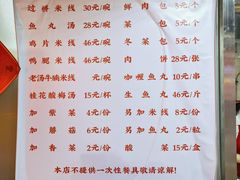 过桥米线 30元/碗 鲜肉包 5元/个
鱼丸汤 28元/碗 豆包 5元/个
鸡片米线 46元/碗 冬菜包 5元/个
鸭腿米线 46元/碗 肉饼 28元/张
老汤牛腩米线 /碗 咖喱鱼丸 10元/串
桂花酸梅汤 15元/杯 生鱼丸 46元/斤
加紫菜 4元/份 另加米线 8元/份
加蘑菇 6元/份 另加鱼丸 2元/粒
加香菜 2元/份 酸菜 15元/盒
本店不提供一次性餐具敬请谅解!